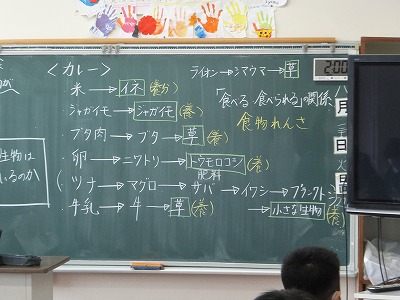 <カレー>
・米→イネ(養分)
・ジャガイモ→ジャガイモ(養)
・ブタ肉→ブタ→草(養)
・卵→ニワトリ→トウモロコシ(養)
肥料
(ツナ→マグロ→サバ→イワシ→プランクトン
→小さな生物(養)
・牛乳→牛→草(養)
ライオン→シマウマ→草
「食べる・食べられる」の関係
食物れんさ
生物は
いるのか
2:00
八
月
日